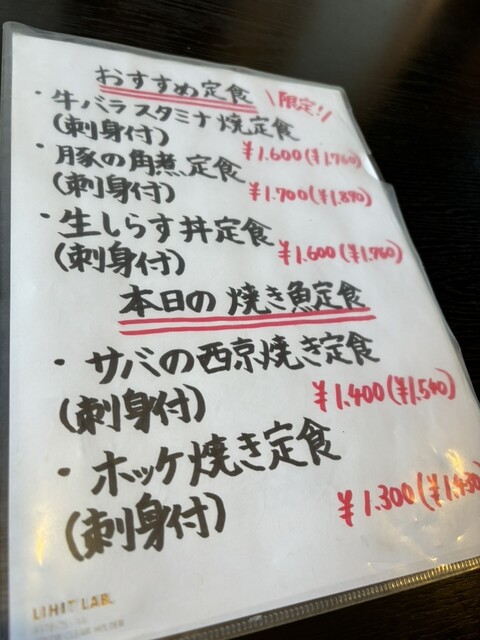 おすすめ定食
\限定!/
・牛バラスタミナ焼定食
(刺身付)
¥1.600(¥1.760)
・豚の角煮定食
(刺身付)
¥1.700(¥1.870)
・生しらす丼定食
(刺身付)
¥1.600(¥1.760)
本日の焼き魚定食
・サバの西京焼き定食
(刺身付)
¥1.400(¥1.540)
・ホッケ焼き定食
(刺身付)
¥1.300(¥1.430)
LIHIT LAB.
CLEAR HOLDER